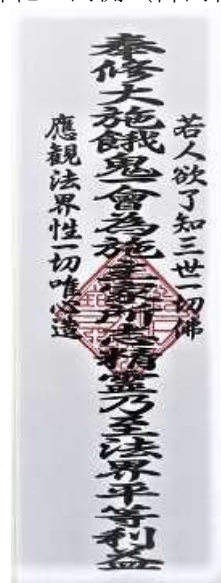 若人欲了知三世一切佛
奉修大施餓鬼一會為施主家所志精霊乃至法界平等利益
應観法界性一切唯心造